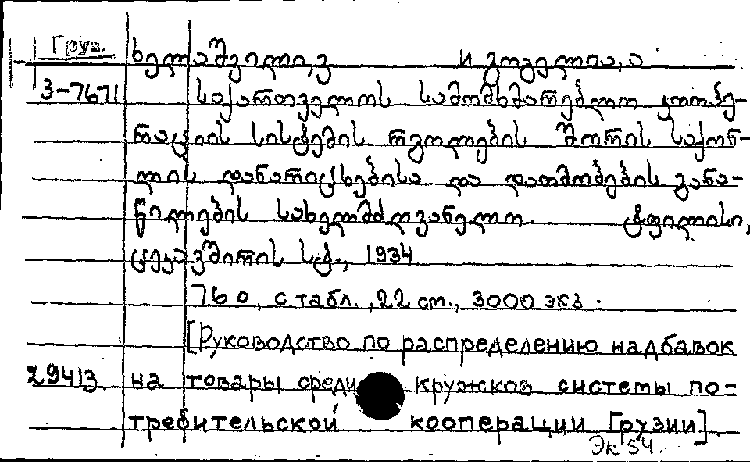 Груз.
ხელაშვილი, ვ и გოგელია, ა
3-7671 საქართველოს სამომხმარებლო კოოპე-
რაციის სისტემის რგოლების შორის საქონ-
ლის დანარიცხებისა და დათმობების განა-
წილების სახელმძღვანელო. ტფილისი,
1934
76 გ, с табл., 22 см., 3000 экз.
[Руководство по распределению надбавок
29413 на товары среди кружков системы по-
требительской кооперации Грузии].
Эк 54.